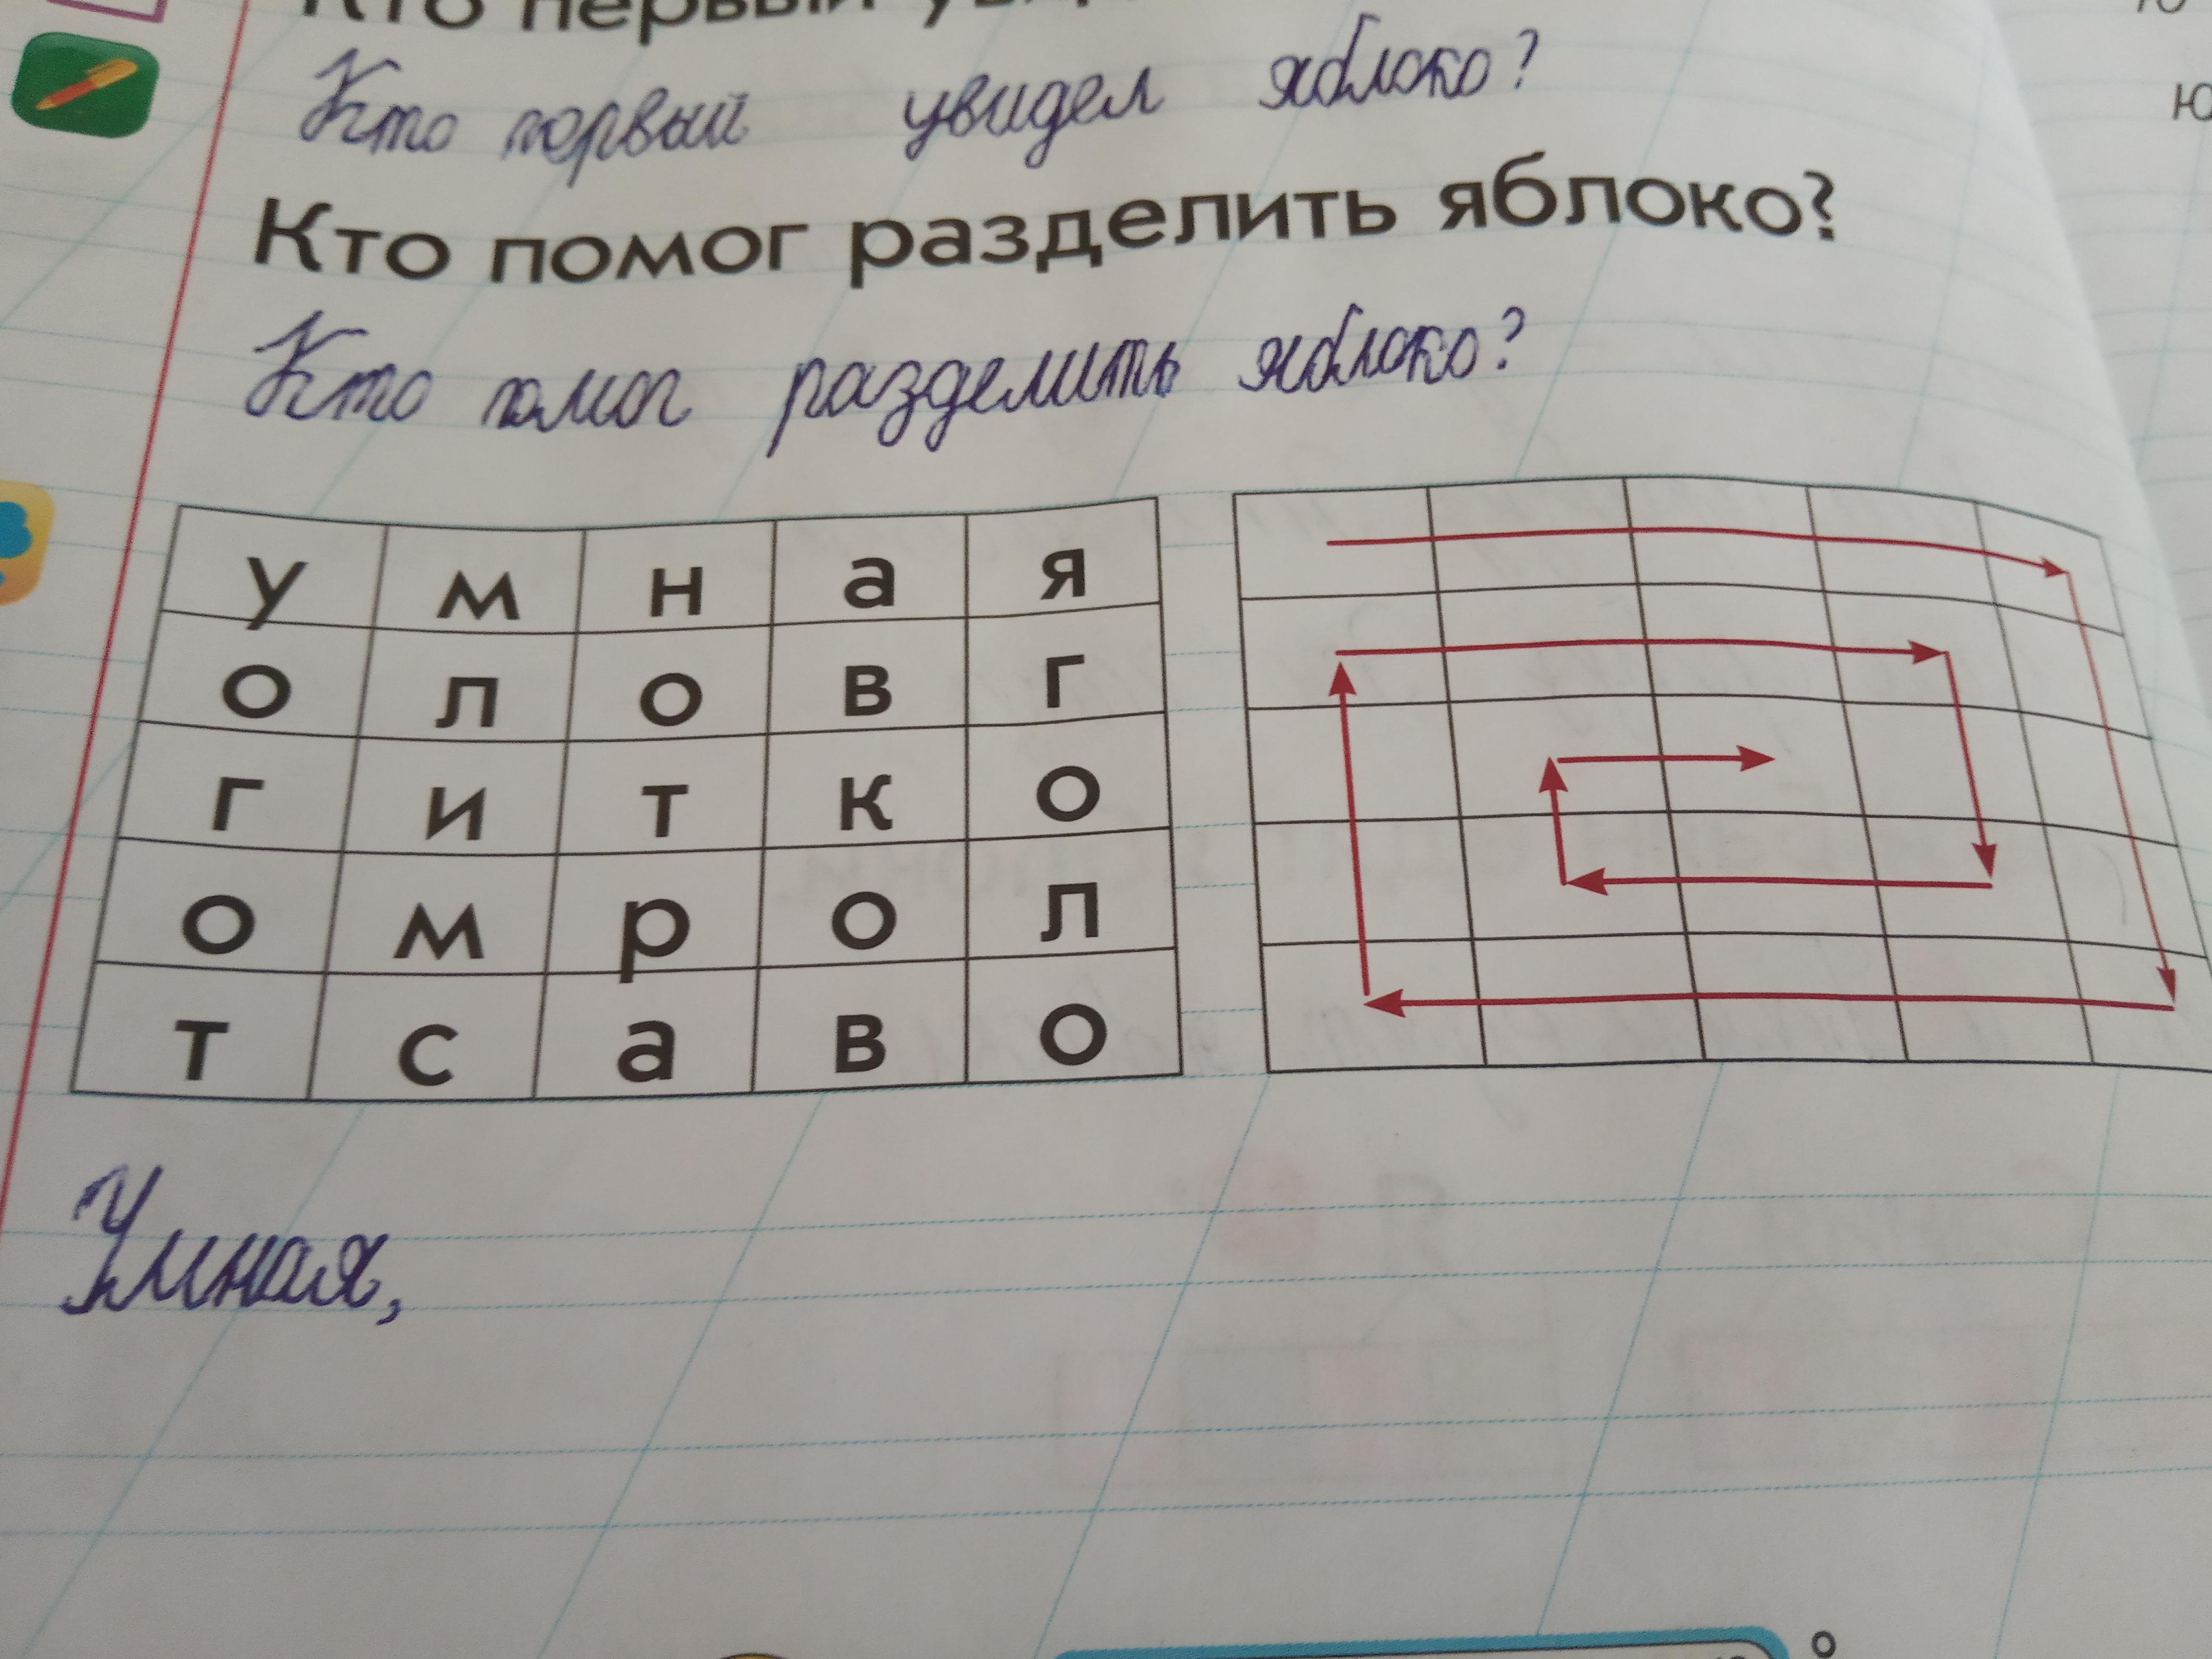 Кто первый
Кто первый увидел яблоко?
Кто помог разделить яблоко?
Кто помог разделить яблоко?
у м н а я
о л о в г
г и т к о
о м р о л
т с а в о
Умная,